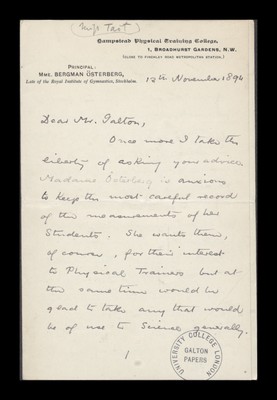 (Miss Tait)
Hampstead Physical Training College,
1, BROADHURST GARDENS, N.W.
(CLOSE TO FINCHLEY ROAD METROPOLITAN STATION.)
PRINCIPAL:
MME. BERGMAN ÖSTERBERG,
Late of the Royal Institute of Gymnastics, Stockholm.
12th November 1894
Dear Mr. Galton,
Once more I take the
liberty of asking your advice.
Madame Österberg is anxious
to keep the most careful record
of the measurements of her
Students. She wants them,
of course, for their interest
to Physical Trainers but at
the same time would be
glad to take any that would
be of use to Science generally.
1
UNIVERSITY COLLEGE LONDON
GALTON
PAPERS